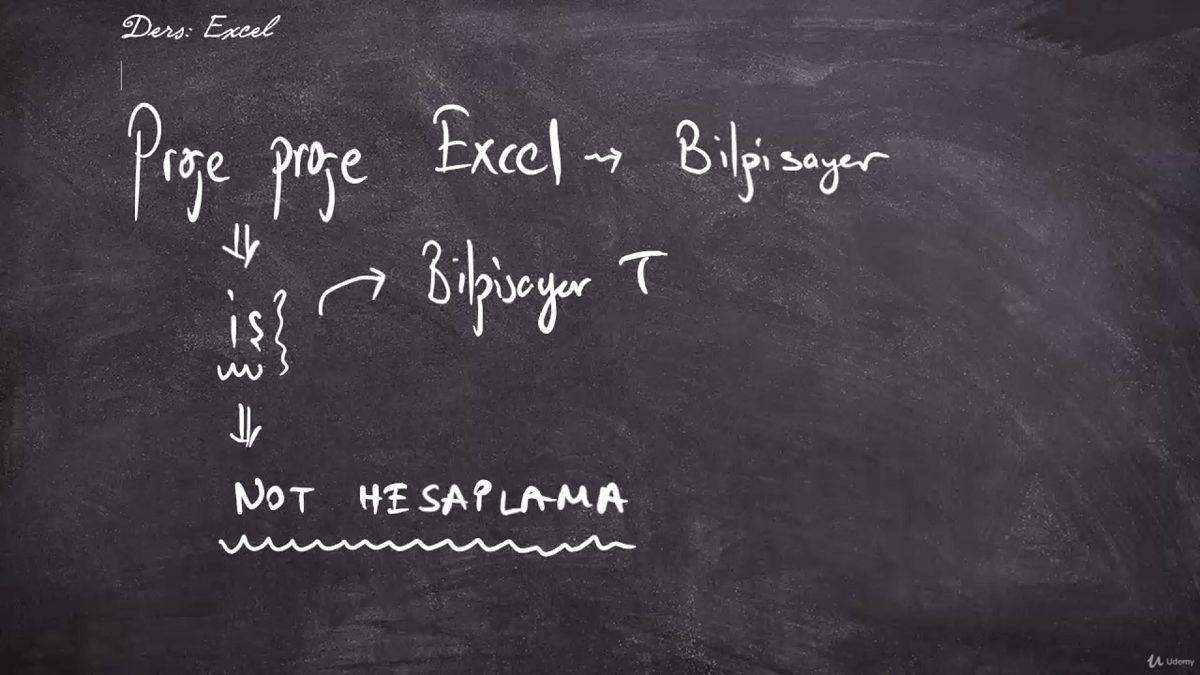 Ders: Excel
Proje proje Excel → Bilgisayar
⇓
iş } → Bilgisayar T
⇓
NOT HESAPLAMA
Udemy